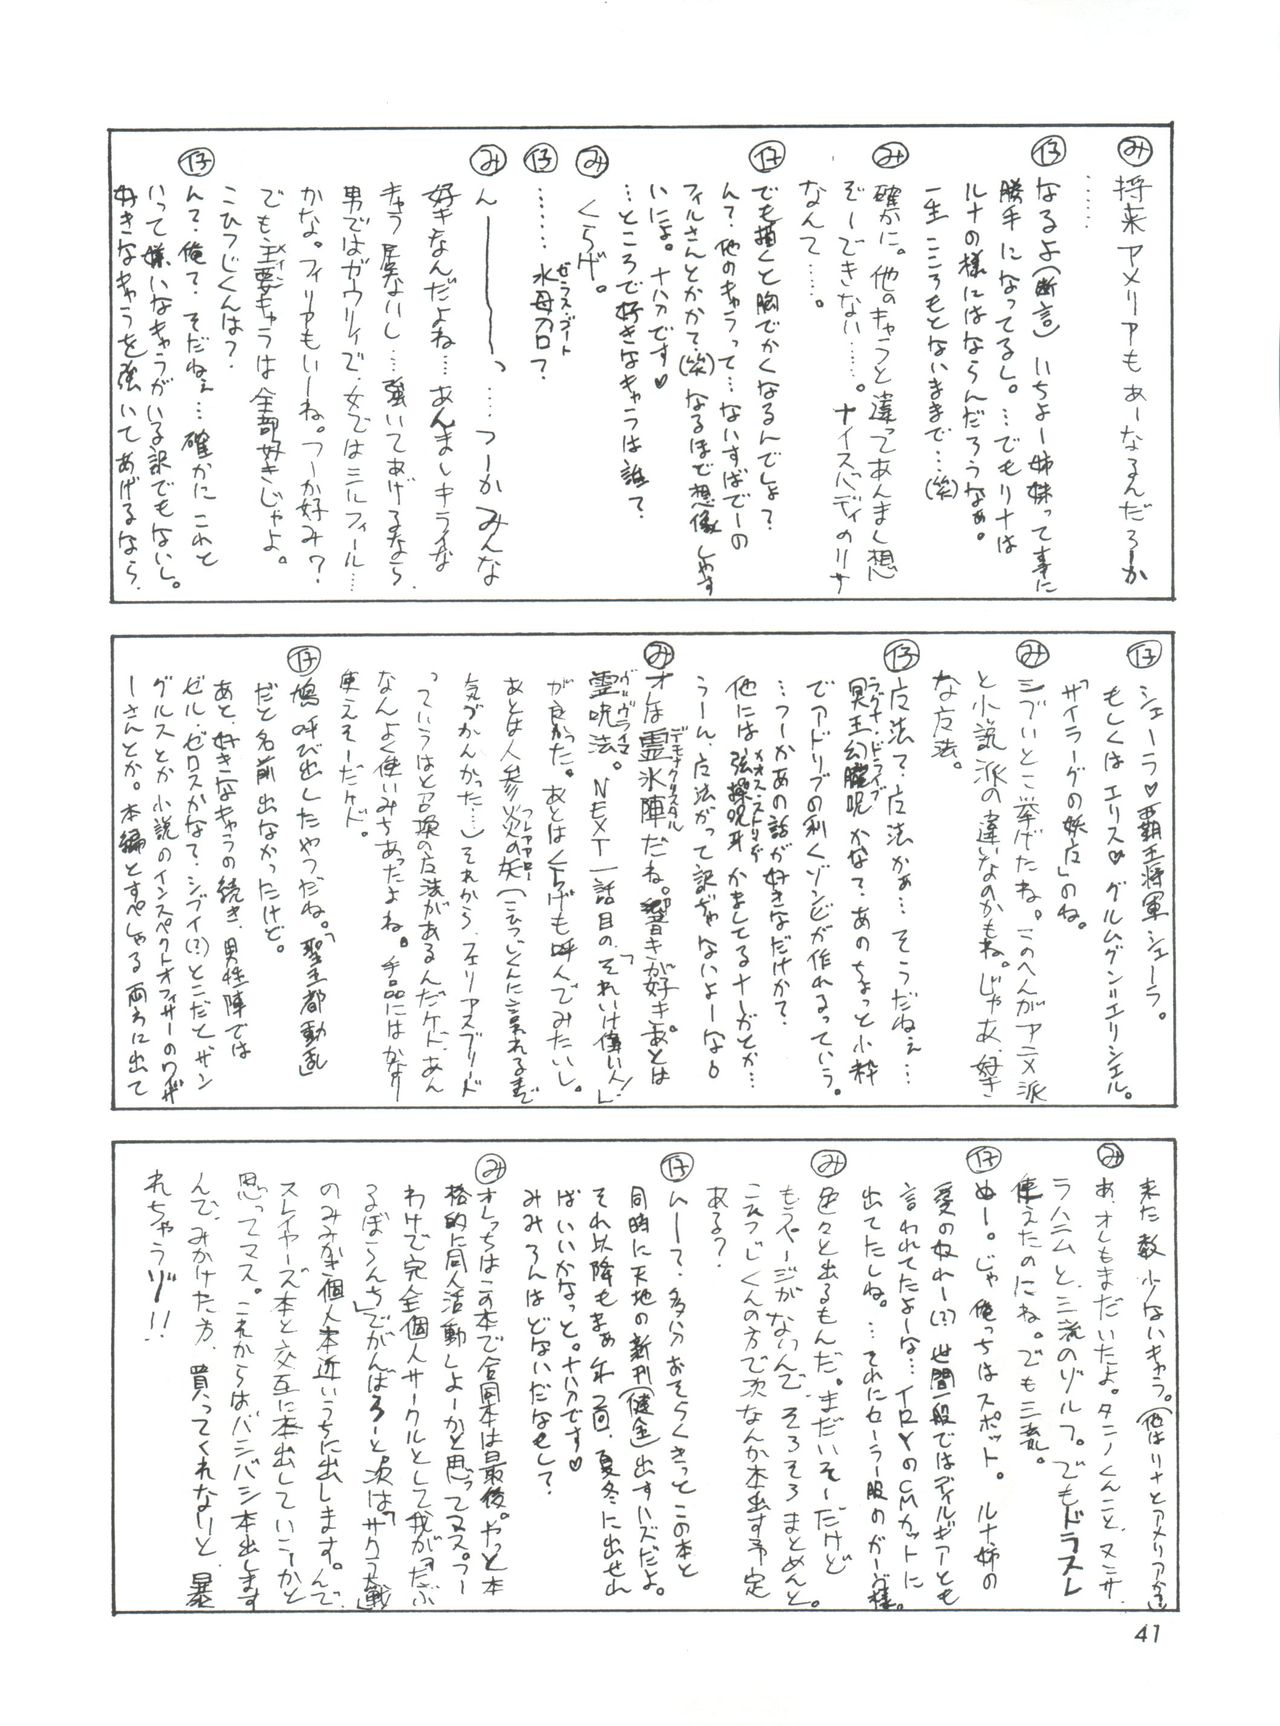 み 将来アメリアもあーなるんだろーか
……
仔 なるよ(断言)いちょー姉妹って事に
勝手になってるし。…でもリナは
ルナの様にはならんだろうなぁ。
一生こころもとないままで…(笑)
み 確かに。他のキャラと違ってあんまし想
ぞーできない……。ナイスバディのリナ
なんて……。
仔 でも描くと胸でかくなるんでしょ?
ん?他のキャラって…ないすばでーの
フィルさんとかかて(笑)なるほど想像しやす
いによ。十八分です♥
…ところで好きなキャラは誰?
み くらげ。
仔 ……水母刀口?
ゼラス・ゴート
み んーーーーっ…つーかみんな
好きなんだよね…あんましキライな
きゃら居ないし…強いてあげるなら
男ではガウリイで、女ではミルフィール…
かな。フィリアもいーね。つーか好み?
でも主要キャラは全部好きじゃよ。
メイン
こひつじくんは?
仔 ん?俺?そだねぇ…確かにこれと
いって嫌いなキャラがいる訳でもないし。
好きなキャラを強いてあげるなら、
仔 シェーラ♥覇王将軍シェーラ。
もしくはエリス♥グルムグン=エリシエル。
「サイラーグの妖店」のね。
み シブいとこ挙げたね。このへんがアニメ派
と小説派の違いなのかもね。じゃあ、好き
な方法。
仔 方法?方法かぁ…そうだねぇ…
ラグナ・ドライブ
冥王幻朧呪かな?あのちょっと小粋
でアドリブの利くゾンビが作れるっていう。
…つーかあの話が好きなだけか?
カオス・ストリング
他には弦操呪牙かましてるナーガとか…
うーん、方法がって訳ぢゃないよーなら
デモナクリスタル
み オレは霊氷陣だね。響きが好き。あとは
ヴルヴライマ
霊呪法。NEXT一話目の、「それいけ偉い人!」
が良かった。あとはくらげも呼んでみたいし。
フレアアロー
あとは人参炎の矢(こひつじくんに言われるまで
気づかんかった…)それから、フェリアスブリード
っていうはと召喚の方法があるんだケド、あん
なんよく使いみちあったよね。手品にはかなり
使えそーだケド。
仔 鳩呼び出したやつだね。「聖王都動乱」
だと名前出なかったけど。
あと、好きなキャラの続き、男性陣では
ゼル・ゼロスかな?シブイ(?)とこだとザン
グルスとか小説のインスペクトオフィサーのワイザ
ーさんとか。本編とすぺしゃる両方に出て
来た数少ないキャラ。(他はリナとアメリアか?)
み あ、オレもまだいたよ。タニノくんこと、ヌンサ、
ラハニムと、三流のゾルフ。でもドラスレ
使えたのにね。でも三流。
仔 ぬー。じゃ俺っちはスポット。ルナ姉の
愛の奴れー(?)世間一般ではディルギアとも
言われてたよーな…イロイロのCMカットに
出てたしね。…それにセーラー服のガーヴ様。
み 色々と出るもんだ。まだいそーだけど
もうページがないんで、そろそろまとめんと。
こひつじくんの方で次なんか本出す予定
ある?
仔 んーて、多分おそらくきっとこの本と
同時に天地の新刊(健全)出すハズだよ。
それ以降もまぁ年2回、夏冬に出せれ
ばいいかなっと。十八分です♥
みみろんはどないだなもし?
み オレっちはこの本で合同本は最後。やっと本
格的に同人活動しよーかと思ってマス。つー
わけで完全個人サークルとして我が「だぶ
るぼらんち」でがんばろーと次は「サクラ大戦」
のみみかき個人本近いうちに出します。んで、
スレイヤーズ本と交互に本出していこーかと
思ってマス。これからはバシバシ本出します
んで、みかけた方、買ってくれなりと、暴
れちゃうゾ!!
41